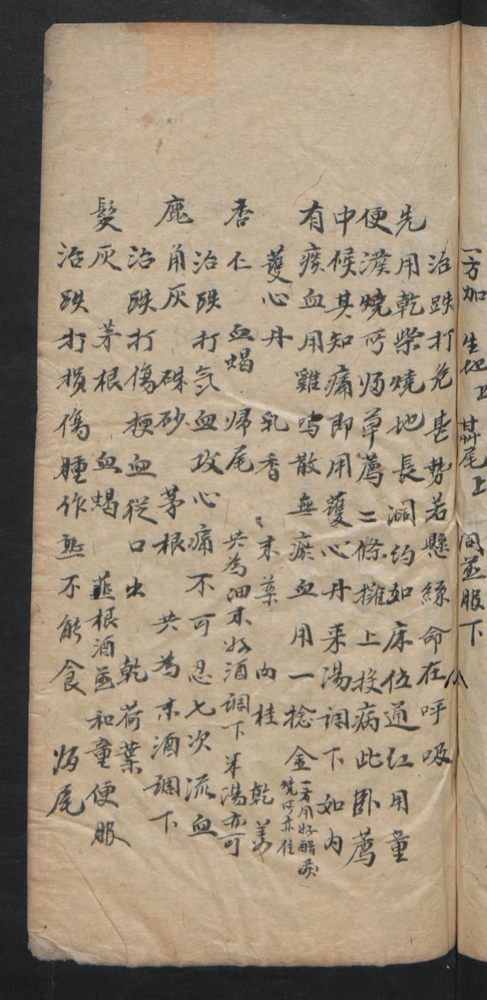 一方加 生地 甘尾 上 同煎服下
治跌打危垂勢若懸絲命在呼吸
先用乾柴燒地長濶約如床位通红用童
便潑燒听歸草薦二條攤上投病此卧薦
中候其知痛即用護心丹釆湯調下如内
有瘀血用雞鳴散無瘀血用一捻金 一方用好醋
亦佳
護心丹 乳香 末藥 肉桂 乾姜
杏仁 血蝎 歸尾 共為細末好酒調下釆湯亦可
治跌打氣血攻心痛不可忍七次流血
鹿角灰 硃砂 茅根 共為末酒調下
治跌打傷梗血從口出 乾荷葉
髮灰 茅根 血蝎 韮根酒煎和童便服
治跌打損傷腫作熱不能食 歸尾